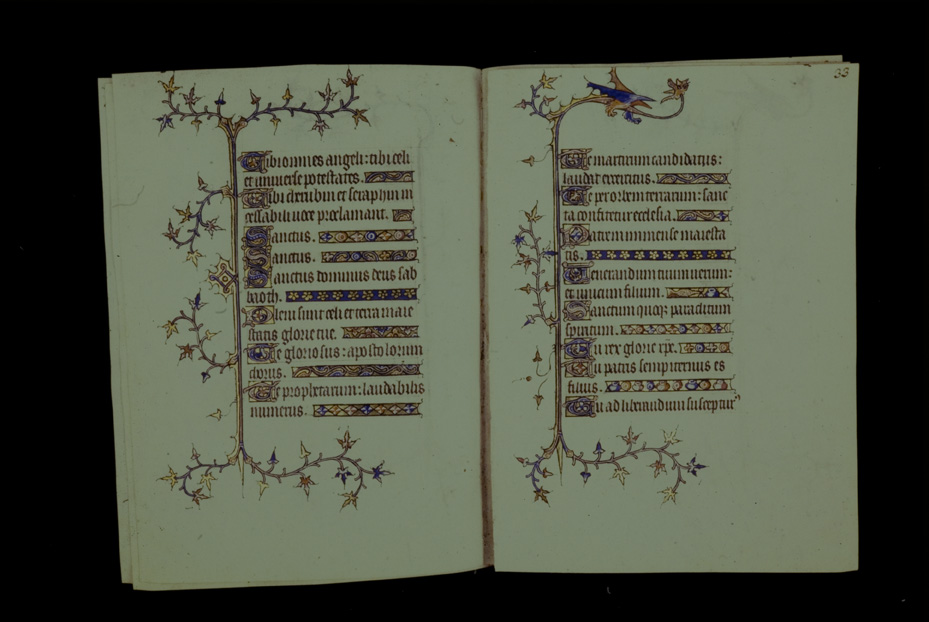 Tibi omnes angeli: tibi celi
et universe potestates.
Tibi cherubim et seraphym in
cessabili voce proclamant.
Sanctus.
Sanctus.
Sanctus dominus deus sab
baoth.
Pleni sunt celi et terra maie
statis glorie tue.
Te gloriosus: apostolorum
chorus.
Te prophetarum: laudabilis
numerus.
33
Te martirum candidatus:
laudat exercitus.
Te per orbem terrarum: sanc
ta confitetur ecclesia.
Patrem immense maiesta
tis.
Venerandum tuum verum:
et unicum filium.
Sanctum quoque paraclitum
spiritum.
Tu rex glorie xpe.
Tu patris sempiternus es
filius.
Tu ad liberandum suscepturus